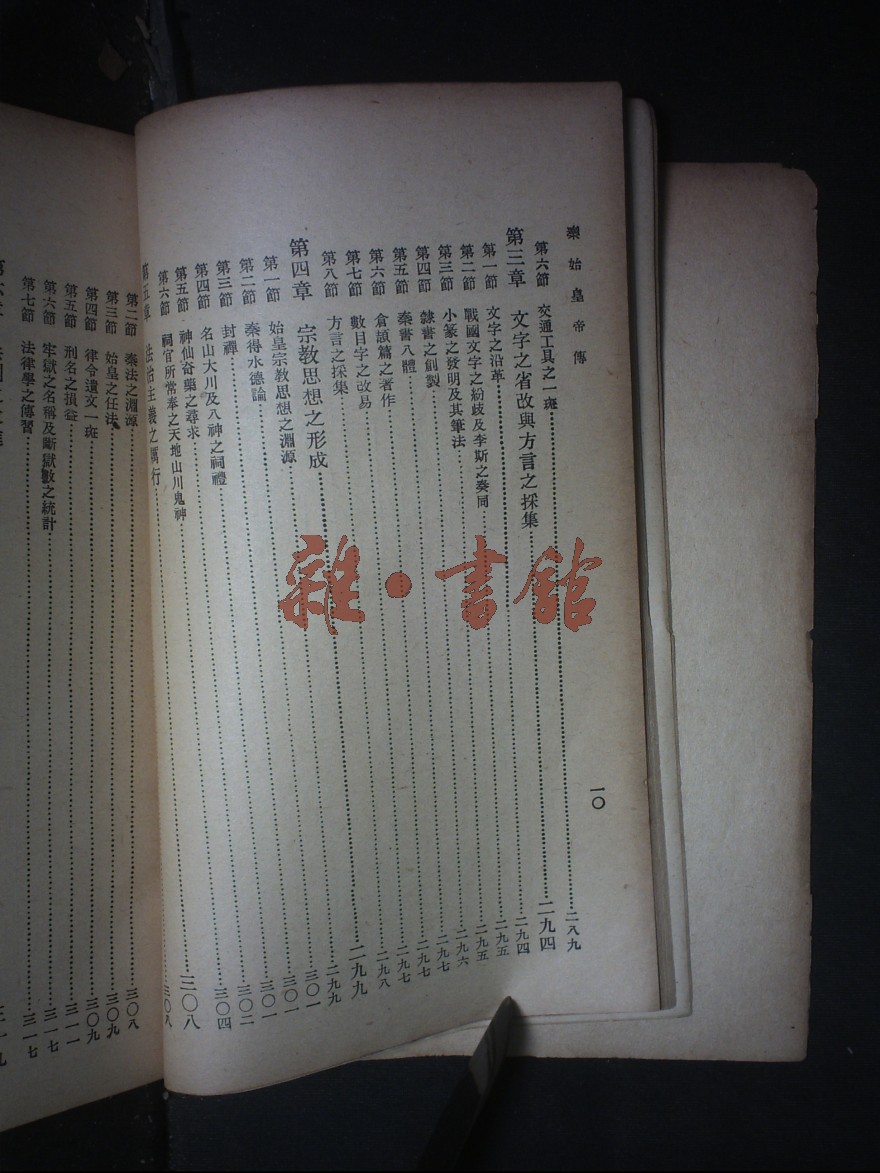 秦始皇帝傳
一〇
第六節 交通工具之一斑……二八九
第三章 文字之省改與方言之採集……二九四
第一節 文字之沿革……二九四
第二節 戰國文字之紛歧及李斯之奏同……二九五
第三節 小篆之發明及其筆法……二九五
第四節 隸書之創製……二九六
第五節 秦書八體……二九七
第六節 倉頡篇之著作……二九七
第七節 數目字之改易……二九七
第八節 方言之採集……二九八
第四章 宗教思想之形成……二九九
第一節 始皇宗教思想之淵源……二九九
第二節 秦得水德論……三〇一
第三節 封禪……三〇一
第四節 名山大川及八神之祠禮……三〇一
第五節 神仙奇藥之尋求……三〇二
第六節 祠官所常奉之天地山川鬼神……三〇四
第五章 法治主義之厲行……三〇八
三〇八
第二節 秦法之淵源……三〇八
第三節 始皇之任法……三〇九
第四節 律令遺文一斑……三〇九
第五節 刑名之損益……三一一
第六節 牢獄之名稱及斷獄數之統計……三一七
第七節 法律學之傳習……三一七
三一九
雜·書館